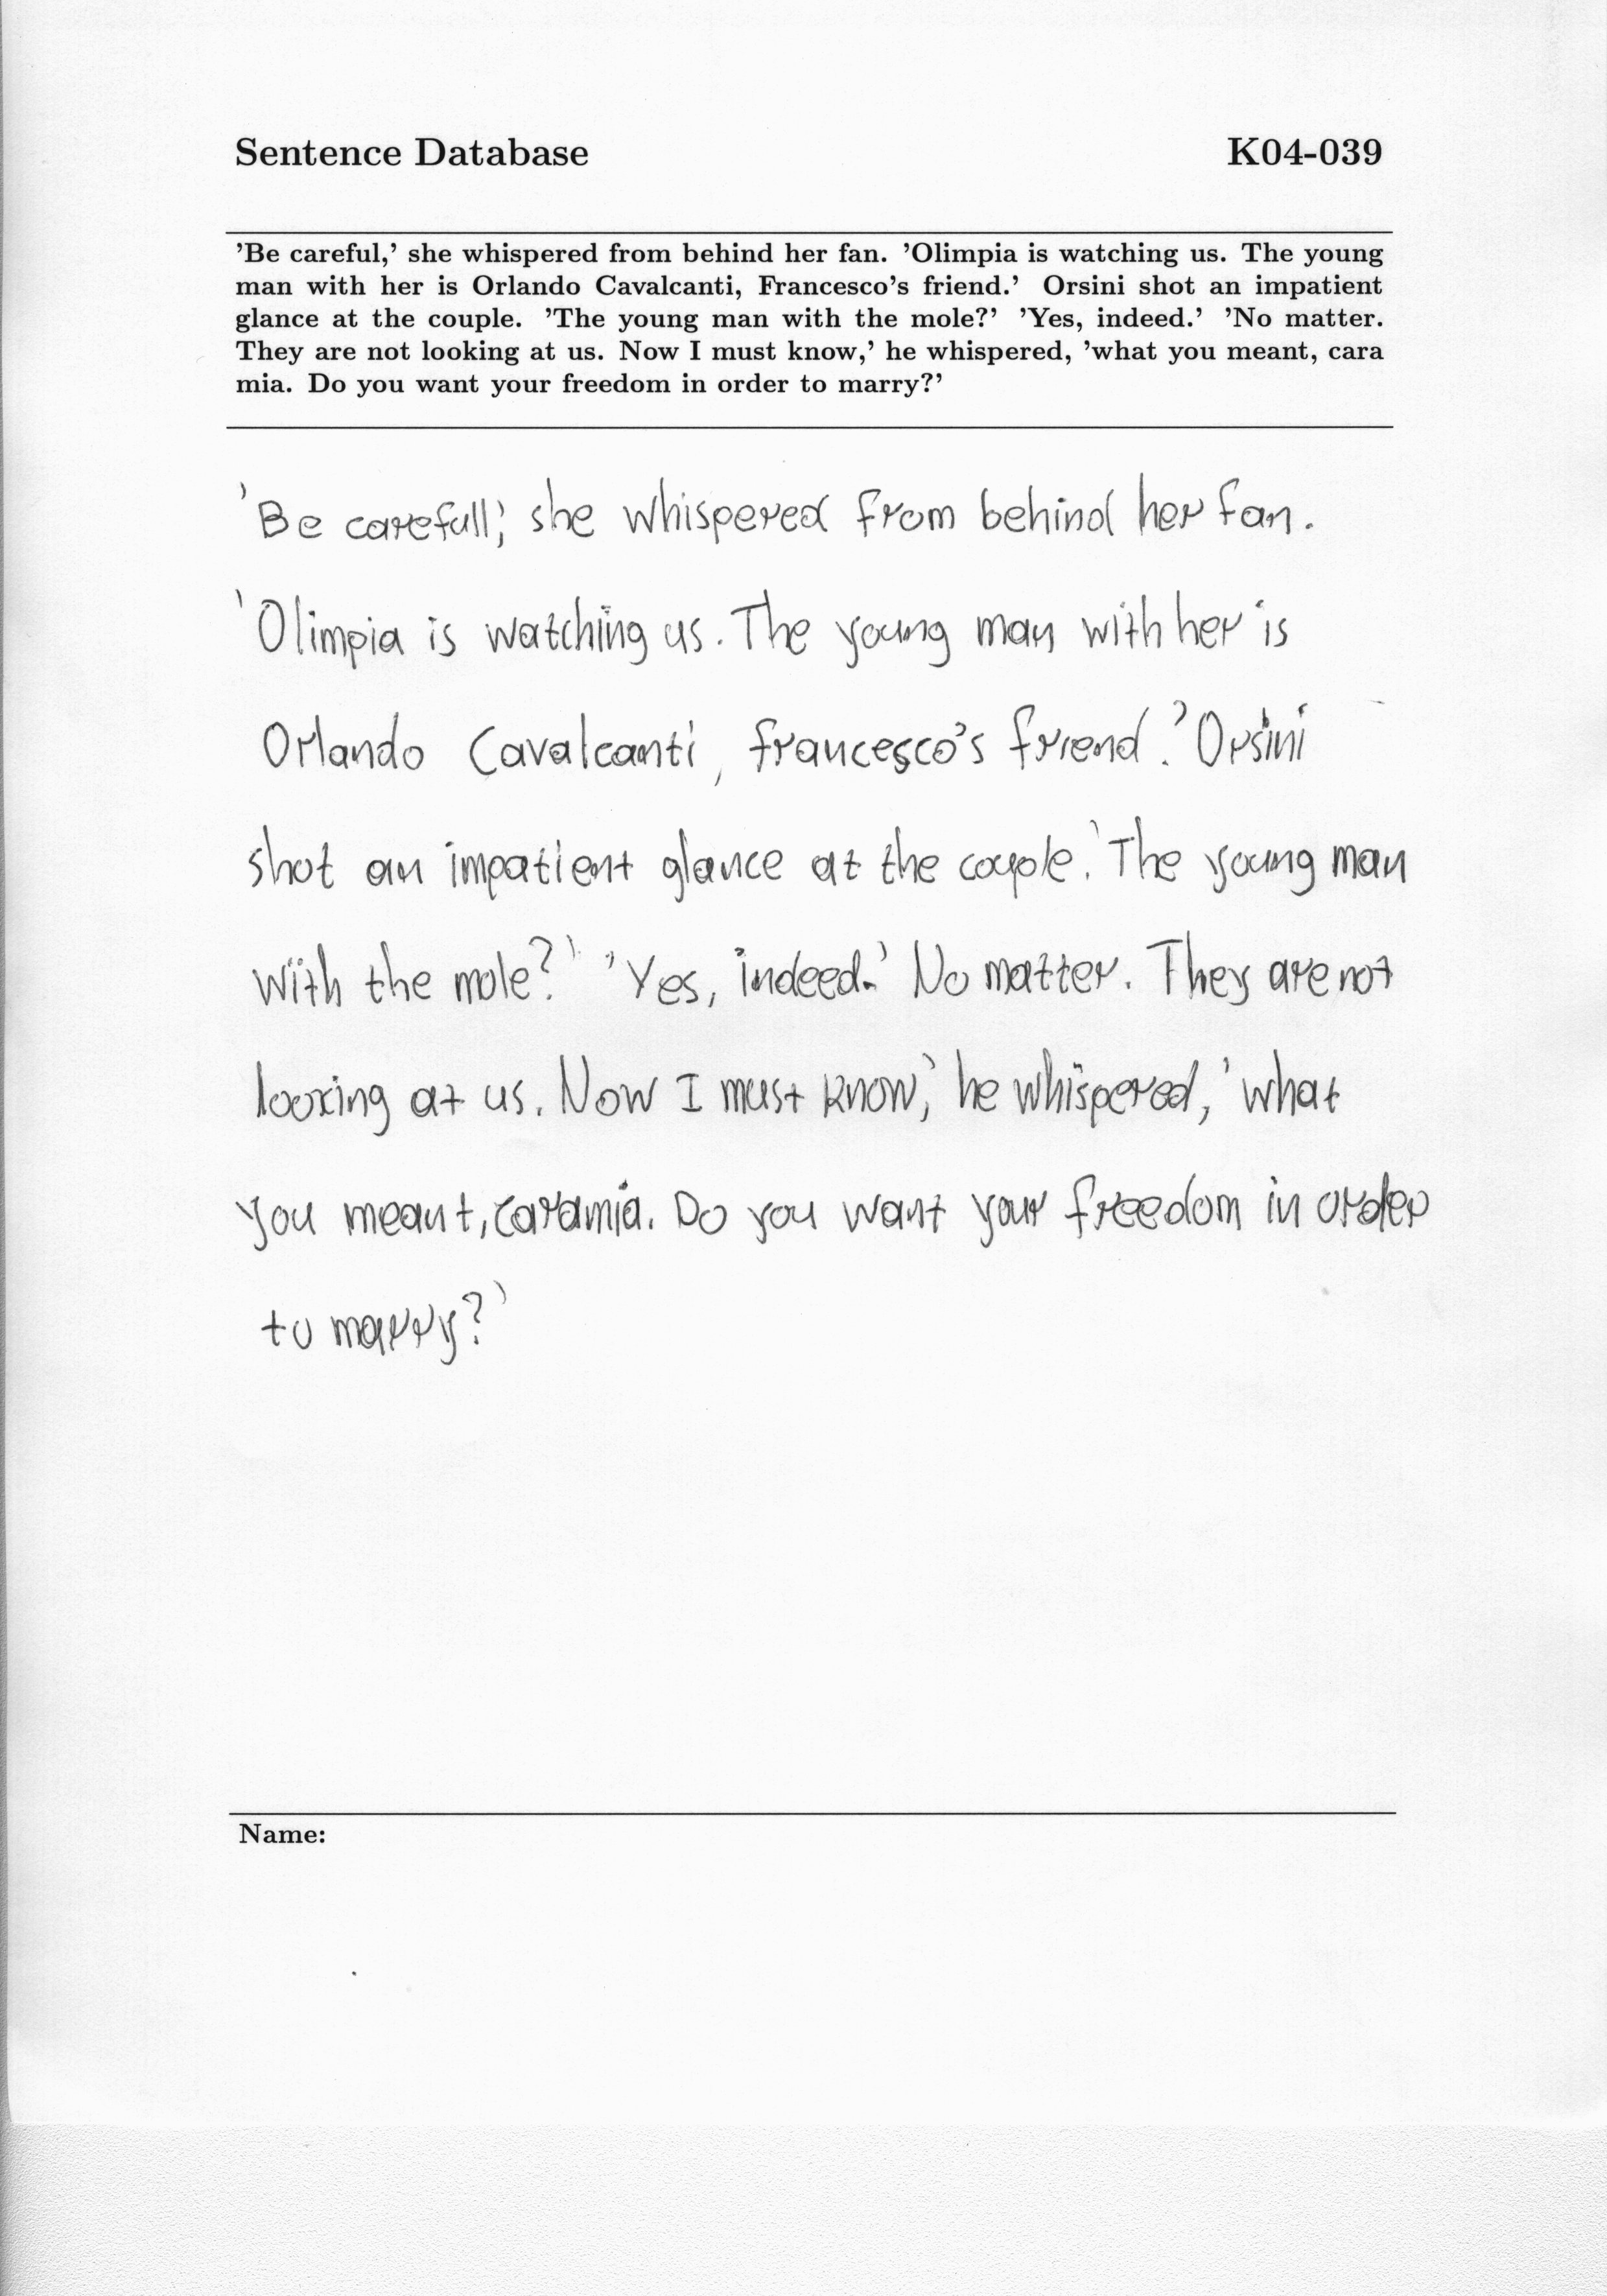 Sentence Database K04-039
'Be careful,' she whispered from behind her fan. 'Olimpia is watching us. The young
man with her is Orlando Cavalcanti, Francesco's friend.' Orsini shot an impatient
glance at the couple. 'The young man with the mole?' 'Yes, indeed.' 'No matter.
They are not looking at us. Now I must know,' he whispered, 'what you meant, cara
mia. Do you want your freedom in order to marry?'
'Be carefull,' she whispered from behind her fan.
'Olimpia is watching us. The young man with her is
Orlando Cavalcanti, francesco's friend.' Orsini
shot an impatient glance at the couple. 'The young man
with the mole?' 'Yes, indeed.' No matter. They are not
looking at us. Now I must know,' he whispered, 'what
you meant, caramia. Do you want your freedom in order
to marry?'
Name: